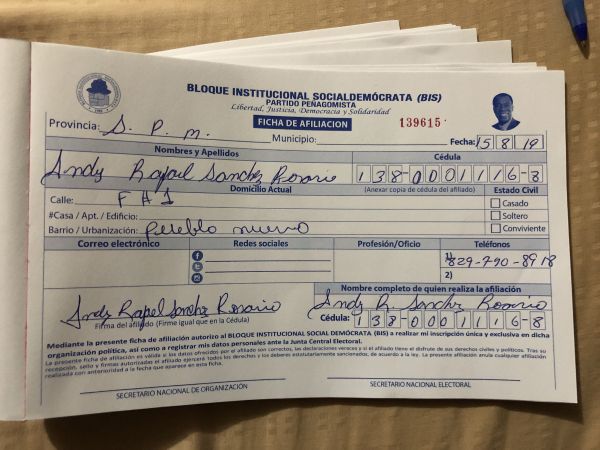 BLOQUE INSTITUCIONAL SOCIALDEMÓCRATA (BIS)
PARTIDO PEÑAGOMISTA
Libertad, Justicia, Democracia y Solidaridad
FICHA DE AFILIACION
139615
Provincia: S. P. m.
Municipio:
Fecha: 15 8 19
Nombres y Apellidos
Cédula
Andy Rafael Sanchez Rosario
138-0001116-8
Domicilio Actual
(Anexar copia de cédula del afiliado)
Estado Civil
Calle: F # 1
Casado
#Casa / Apt. / Edificio:
Soltero
Barrio / Urbanización: Pueblo nuevo
Conviviente
Correo electrónico
Redes sociales
Profesión/Oficio
Teléfonos
1) 829-790-8918
2)
Nombre completo de quien realiza la afiliación
Andy Rafael Sanchez Rosario
Andy R. Sanchez Rosario
Firma del afiliado (Firme igual que en la Cédula)
Cédula: 138-0001116-8
Mediante la presente ficha de afiliación autorizo al BLOQUE INSTITUCIONAL SOCIAL DEMÓCRATA (BIS) a realizar mi inscripción única y exclusiva en dicha
organización política, así como a registrar mis datos personales ante la Junta Central Electoral.
La presente ficha de afiliación es válida si los datos ofrecidos por el afiliado son correctos, las declaraciones veraces y si el afiliado tiene el disfrute de sus derechos civiles y políticos. Tras su
recepción, sello y firmas autorizadas el afiliado ejercerá todos los derechos y los deberes estatutariamente sancionados, de acuerdo a la ley. La presente afiliación anula cualquier afiliación
realizada con anterioridad a la fecha que aparece en esta ficha.
SECRETARIO NACIONAL DE ORGANIZACIÓN
SECRETARIO NACIONAL ELECTORAL